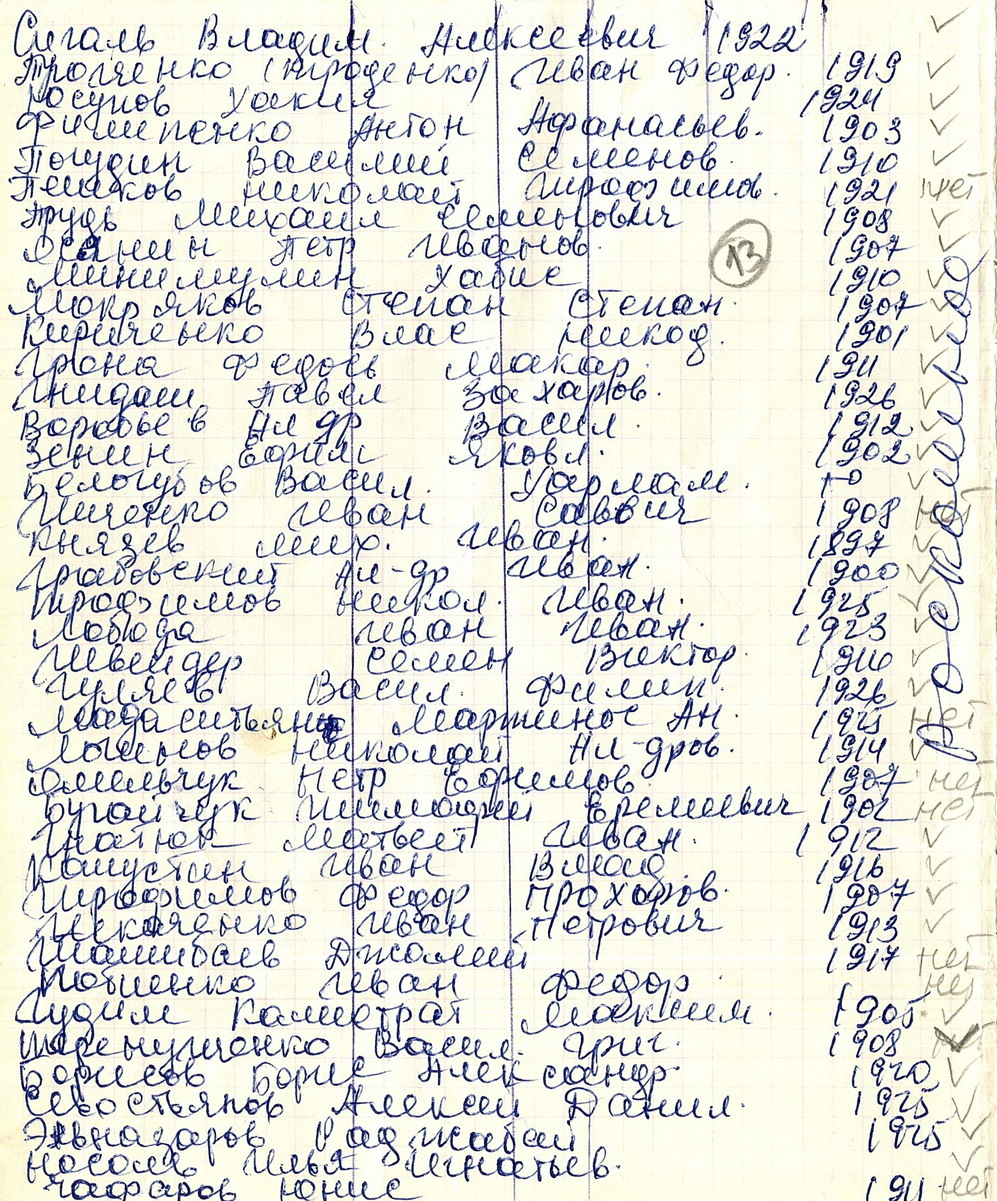 Сигаль Владим. Алексеевич 1922
Проценко (Троценко) Иван Федор. 1919
Юсупов 1924
Филипенко Антон Афанасьев. 1903
Погудин Василий Семенов. 1910
Пешков Николай Трофимов. 1921 нет
Трудь Михаил Семенович 1908
Осанин Петр Иванов. 1907
13
Минимулин Хабис 1910
Мокряков Степан Степан. 1907
Кириченко Влас Никод. 1901
Грона Федось Макар. 1911
Гнидаш Павел Захаров. 1926
Воробьев Ал-др Васил. 1912
Зенин Ефим Яковл. 1902
Белогубов Васил.
Тищенко Иван Саввич 1908
Князев Мих. Иван. 1897
Грабовский Ал-др Иван. 1900
Трофимов Никол. Иван. 1925
Лобода Иван Иван. 1923
Швейдер Семен Виктор.
Гуляев Васил. Филип. 1926
Мартинос Ан. 1925 нет
Логинов Николай Ал-дров. 1914
Омельчук Петр Ефимов. 1907 нет
Бугайчук Тимофей Еремеевич 1902 нет
Гнатюк Матвей Иван. 1912
Капустин Иван Влад. 1916
Трофимов Федор Прохоров. 1907
Иван Петрович 1913
Шашибаев 1917 нет
Иван Федор. нет
Судим Калистрат Максим. 1905
Васил. Григ. 1908
Борисов Борис Александр. 1920
Севостьянов Алексей Данил. 1925
Эльназаров Раджабай 1925
Носоль Илья Игнатьев.
Гафаров Юнис 1911 нет